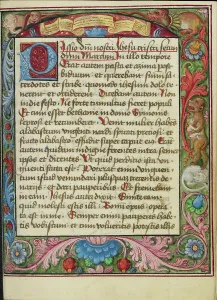 Passio dñi nostri Jhesu xpristi secun
dum Marcum In illo tempore
Erat autem pasca et azima post
biduum et querebant summi sa
cerdotes et scribe quomodo ihesum dolo te
nerent et occiderent Dicebant autem Non
in die festo Ne forte tumultus fieret populi
Et cum esset bethanie in domo Simonis
leprosi et recumberet Venit mulier habens
alabastrum unguenti nardi spicati preciosi et
fracto alabastro effudit super caput eius Erant
autem quidam indigne ferentes intra semet
ipsos et dicentes Ut quid perditio ista un
guenti est Poterat enim unguen
tum istud venundari plusquam trecentis de
narijs et dari pauperibus Et fremebant
in eam Jhesus autem dixit Sinite eam
quid molesti estis illi Bonum opus opera
ta est in me Semper enim pauperes habe
tis vobiscum et cum volueritis potestis illis